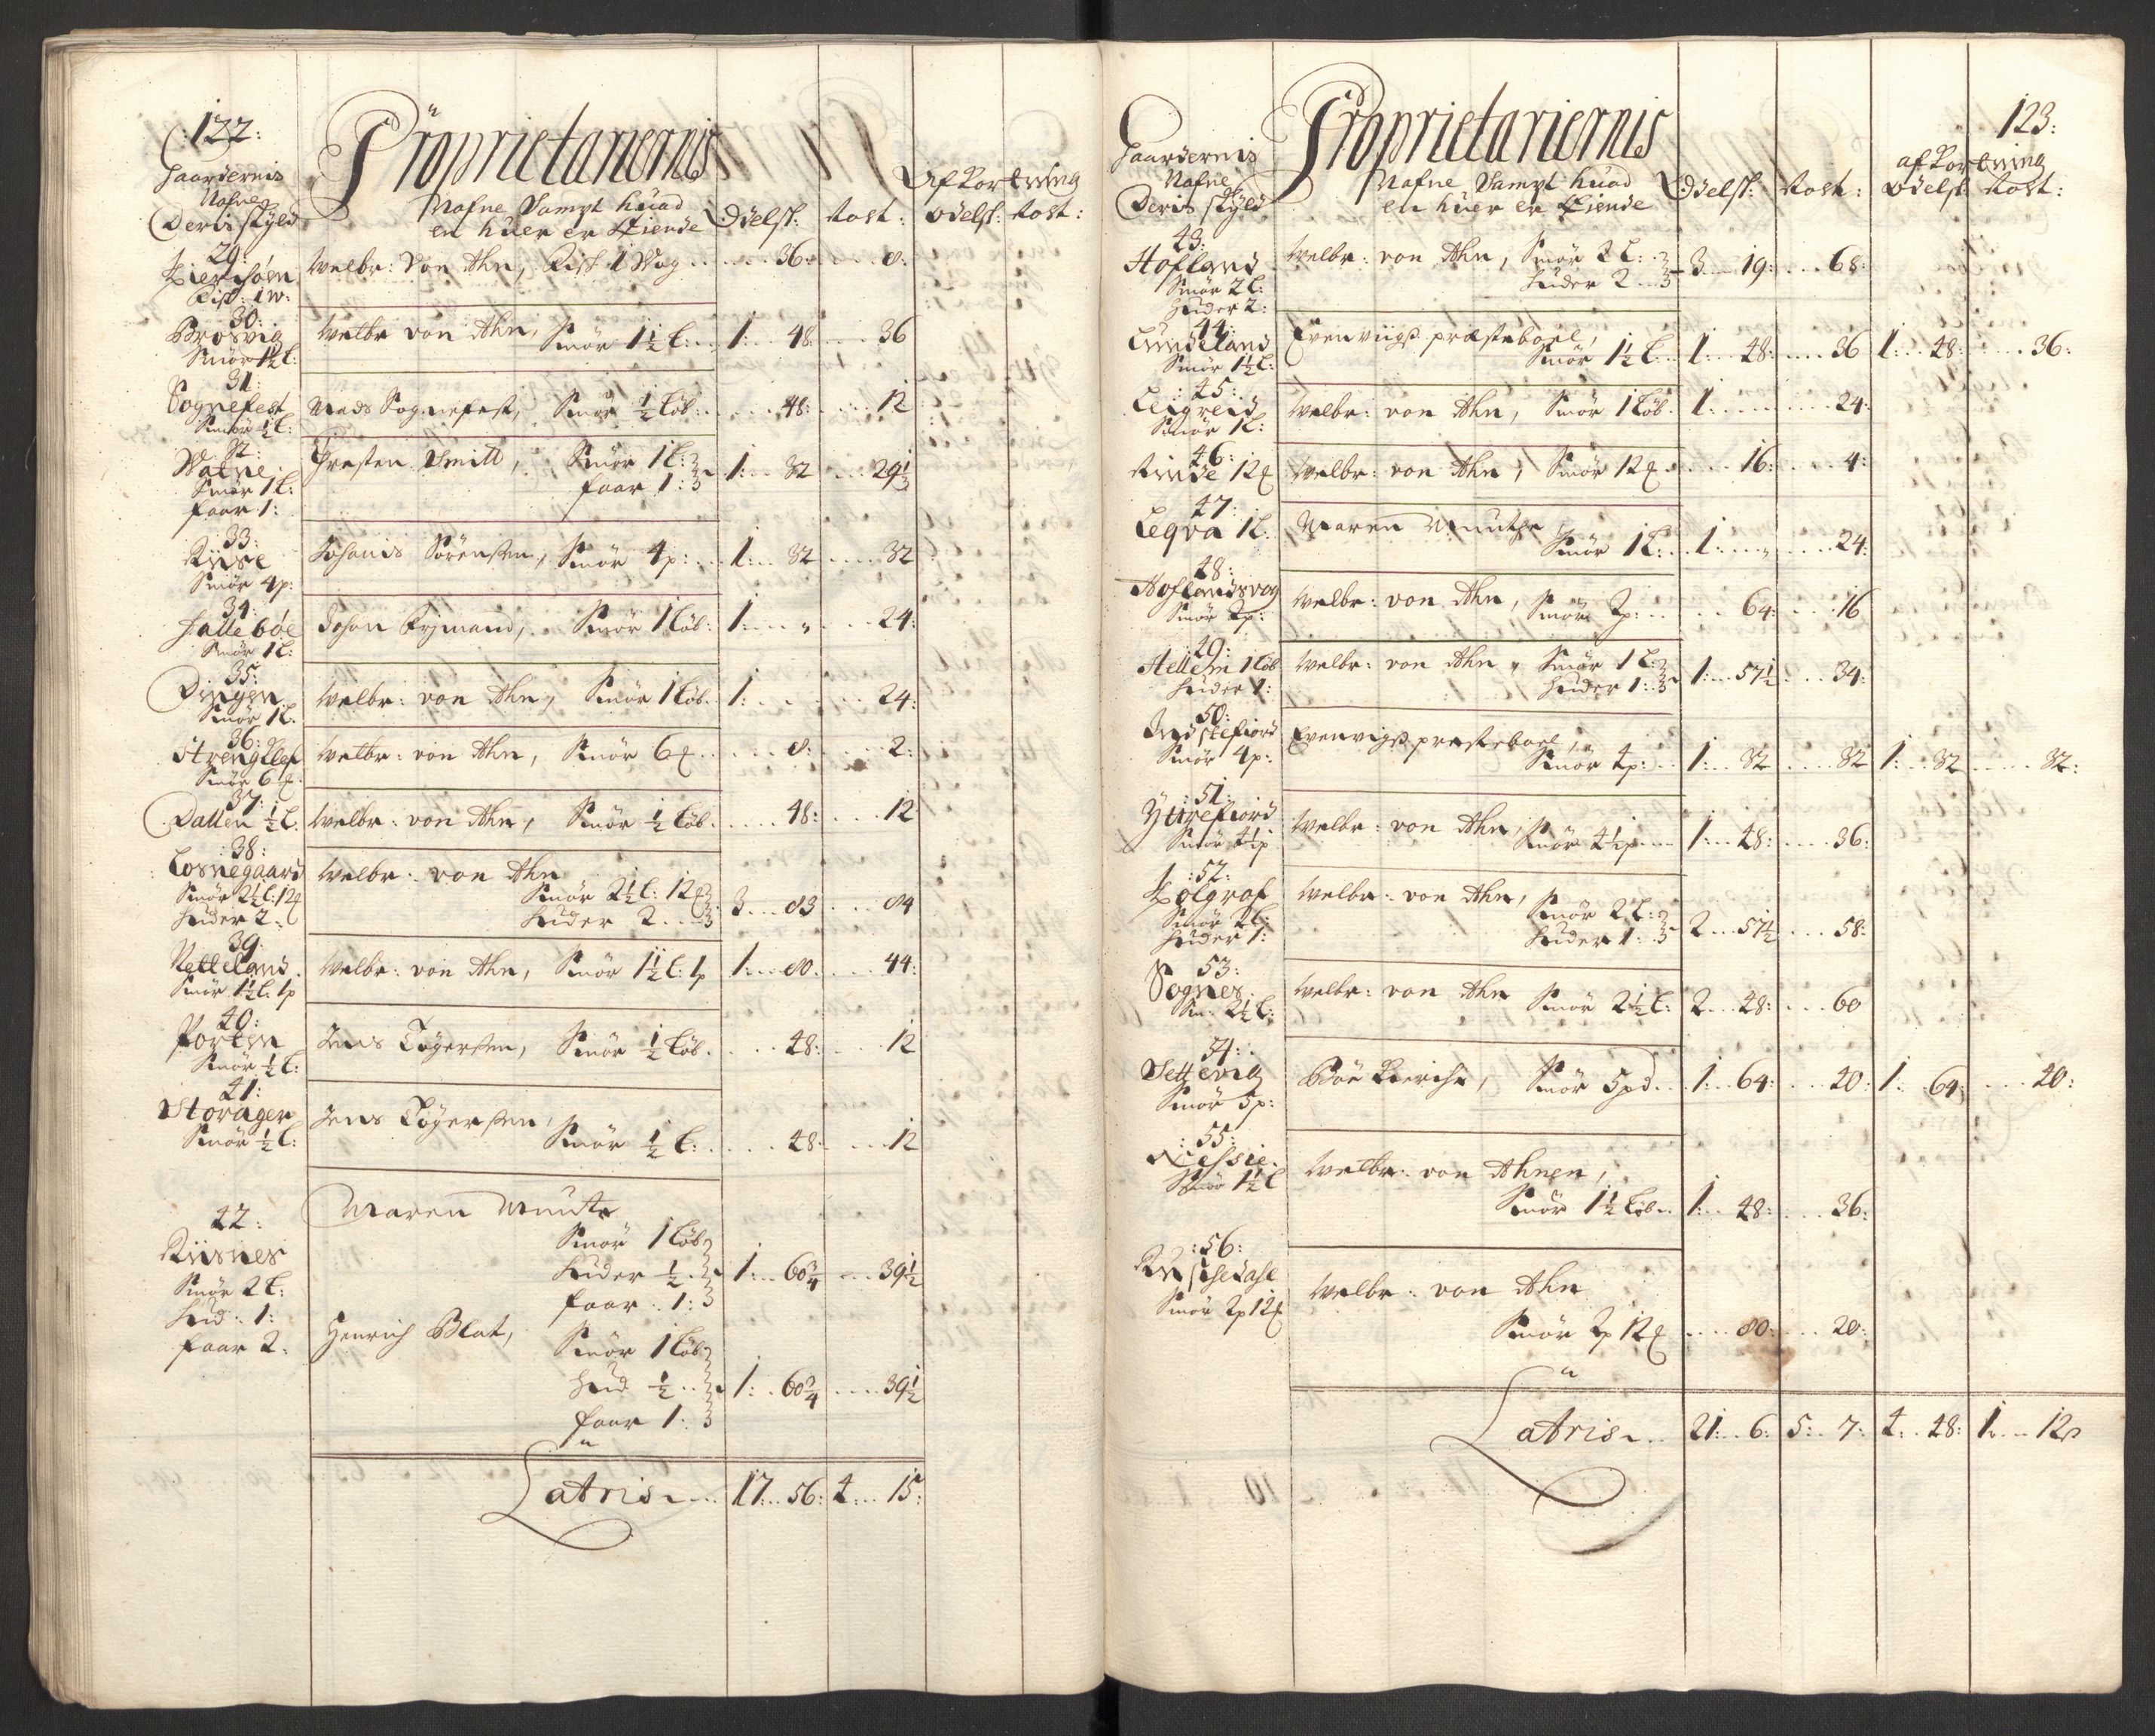 :122:
Proprietariernis
Gaardernis
Nafne
Deris skyld
Nafne Sampt huad
en huer er Eiende
Odelsk: Rost:
Afkortning
odelsk: Rost:
29:
Fisk: 1 W:
Welbr: Von Ahn, Fisk 1 Wog ... 36: ... 8:
30:
Brosvig
Smør 1½ L:
Welbr von Ahn, Smør 1½ L: 1: 48: 36
31:
Sognefest
Smør ½ L:
Mads Sognefest, Smør ½ Løb: 48: 12
32:
Watne
Smør 1 L:
faar 1:
Christen Smitt, Smør 1 L:
faar 1: 1: 32 29⅓
33:
Riise
Smør 4 p:
Johanis Sørensen, Smør 4 p: 1: 32 32
34:
Hallebøe
Smør 1 L:
Johan Fijmand, Smør 1 Løb: 1: „ 24:
35:
Dingen
Smør 1 L:
Welbr: von Ahn, Smør 1 Løb. 1: 24:
36:
Strengklef
Smør 6
Welbr: von Ahn, Smør 6 8: 2:
37:
Dallen ½ L.
Welbr: von Ahn, Smør ½ Løb. 48: 12
:38:
Losnegaard
Smør 2½ L: 12
Huder 2
Welbr: von Ahn
Smør 2½ L: 12
Huder 2 3 83 84
39:
Netteland
Smør 1½ L: 1p
Welbr: von Ahn, Smør 1½ L: 1p 1: 80. 44:
40:
Porten
Smør ½ L:
Jens Tøgersen, Smør ½ Løb. 48: 12
41:
Storager
Smør ½ L:
Jens Tøgersen,
Smør ½ L: 48: 12
42:
Riisnes
Smør 2 L:
Hud: 1:
faar 2:
Maren Munthe
Smør 1 Løb
Huder ½
faar 1: 1: 60¾ 39½
Henrich Blat,
Smør 1 Løb
Hud ½
faar 1: 1: 60¾ 39½
Latris 17: 56: 4: 15:
123:
Proprietariernis
Gaardernis
Nafne
Deris skyld
Nafne Sampt huad
en huer er Eiende
Odelsk: Rost:
afkortning
Odelsk: Rost:
43:
Hofland
Smør 2 L:
Huder 2:
Welbr: von Ahn, Smør 2 L:
Huder 2 3 19: 68:
44:
Lundeland
Smør 1½ L:
Evenviigs præsteboel,
Smør 1½ L. 1: 48: 36 1: 48: 36:
:45:
Leigreid
Smør 1 L:
Welbr: von Ahn, Smør 1 Løb. 1: 24:
46:
Rinde 12
Welbr: von Ahn, Smør 12 16: 4:
47:
Leqva 1 L.
Maren Munthe
Smør 1 L: 1: „ 24:
48:
Hoflandsvog
Smør 2 p:
Welbr: von Ahn, Smør 2 p: 64: 16
:49:
Hellem 1 Løb
Huder 1:
Welbr: von Ahn, Smør 1 L:
Huder 1: 1: 57½ 34:
50:
Indstefiord
Smør 4 p:
Evenvigs præsteboel,
Smør 4 p: 1: 32 32 1: 32 32:
:51:
Ytrefiord
Smør 4½ p
Welbr: von Ahn, Smør 4½ p 1: 48: 36:
:52:
Kolgrof
Smør 2 L:
Huder 1:
Welbr: von Ahn,
Smør 2 L:
Huder 1: 2 57½ 58:
53:
Sognes
Sm: 2½ L:
Welbr: von Ahn Smør 2½ L: 2 48: 60
54:
Settevig
Smør 5 p:
Boe Smør 5 pd. 1: 64: 20: 1: 64: 20:
:55:
Smør 1½ L
Welbr: von Ahnen,
Smør 1½ Løb. 1: 48: 36:
:56:
Smør 2 p 12
Welbr: von Ahn
Smør 2 p 12 80: 20:
Latris 21: 6: 5: 7: 4: 48: 1: 12